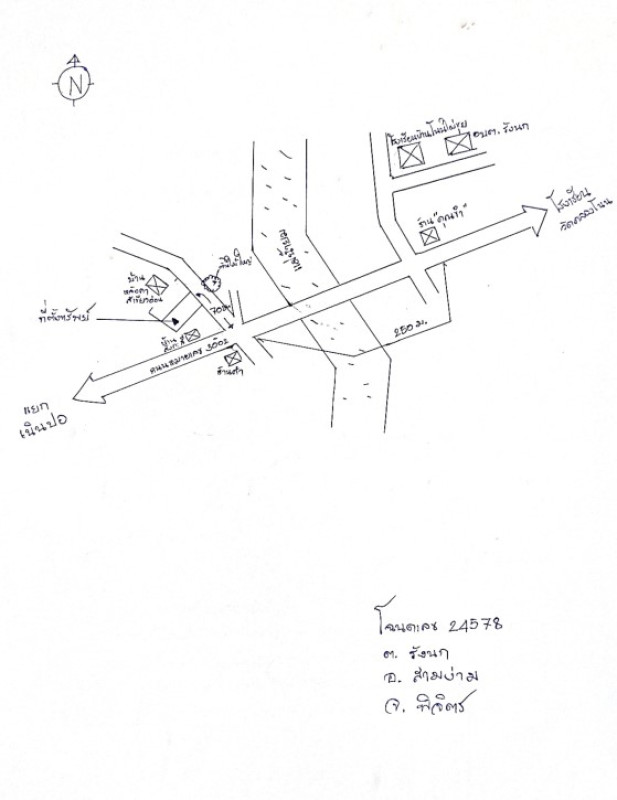 N
โรงเรียนบ้านโนนไผ่ชุย
อบต. รังนก
โรงเรียน
วัดคลองโนน
ร้าน"คุณรำ"
ต้นไม้ใหญ่
บ้าน
หลังคา
70 ม.
ที่ตั้งทรัพย์
บ้าน
ถนนหมายเลข 3002
250 ม.
แยก
เนินปอ
โฉนดเลข 24578
ต. รังนก
อ. สามง่าม
จ. พิจิตร